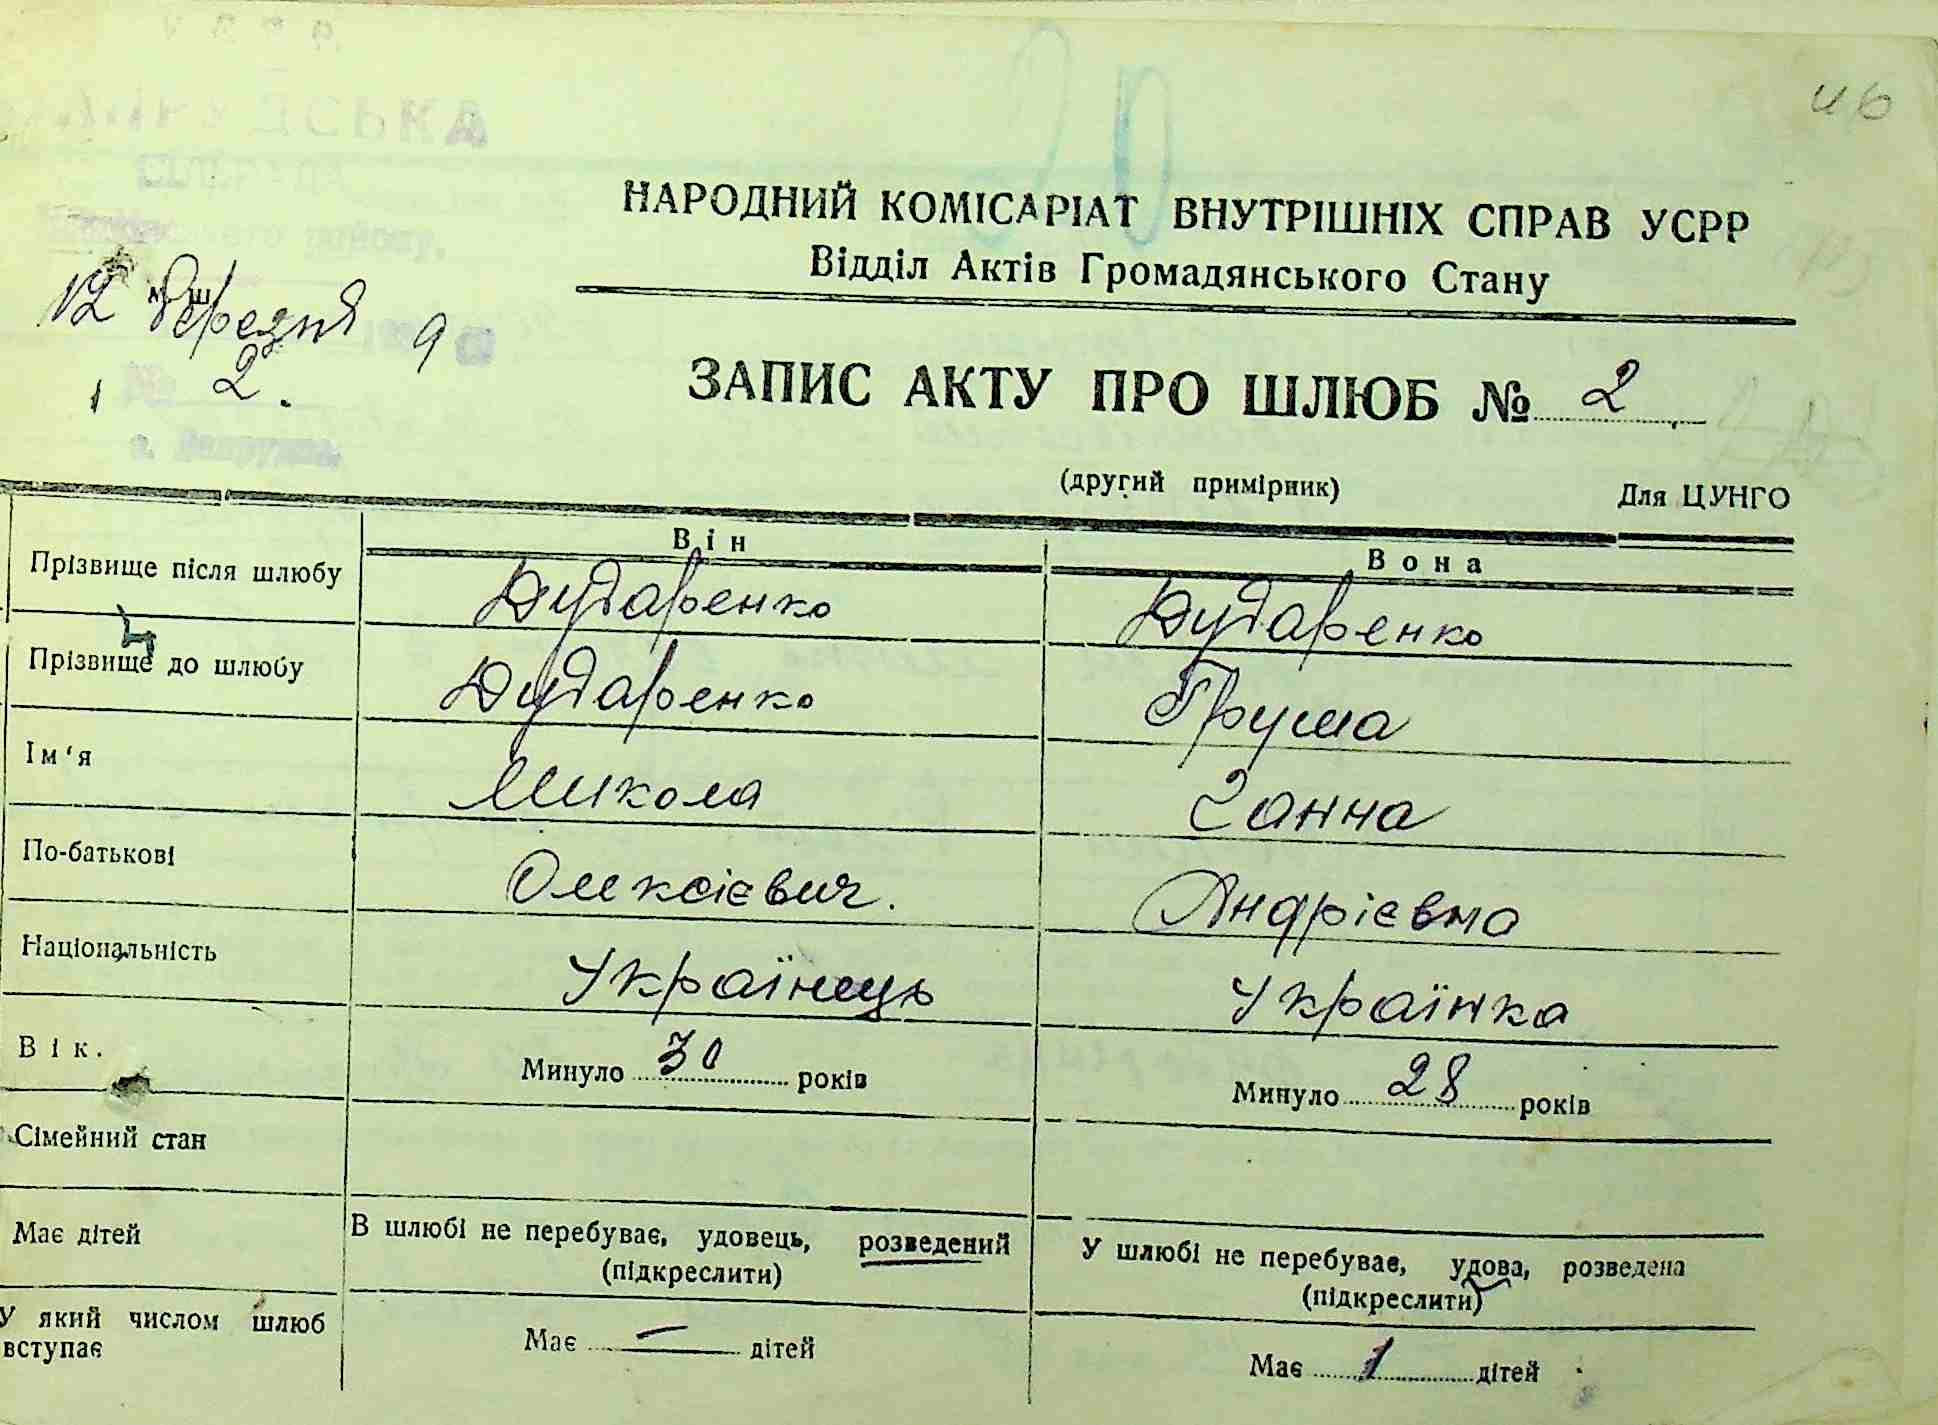 46
НАРОДНИЙ КОМІСАРІАТ ВНУТРІШНІХ СПРАВ УСРР
Відділ Актів Громадянського Стану
12 березня 9
2.
ЗАПИС АКТУ ПРО ШЛЮБ № 2
(другий примірник) Для ЦУНГО
Він Вона
Прізвище після шлюбу Дударенко Дударенко
Прізвище до шлюбу Дударенко Груша
Ім'я Микола Ганна
По-батькові Олексієвич. Андрієвна
Національність Українець Українка
Вік. Минуло 30 років Минуло 28 років
Сімейний стан
Має дітей В шлюбі не перебуває, удовець, розведений У шлюбі не перебуває, удова, розведена
(підкреслити) (підкреслити)
У який числом шлюб вступає Має — дітей Має 1 дітей